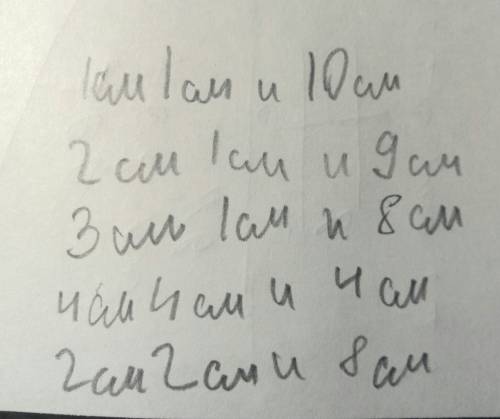 1см 1см и 10см
2 см 1см и 9 см
3 см 1см и 8 см
4см 4см и 4 см
2см 2см и 8см